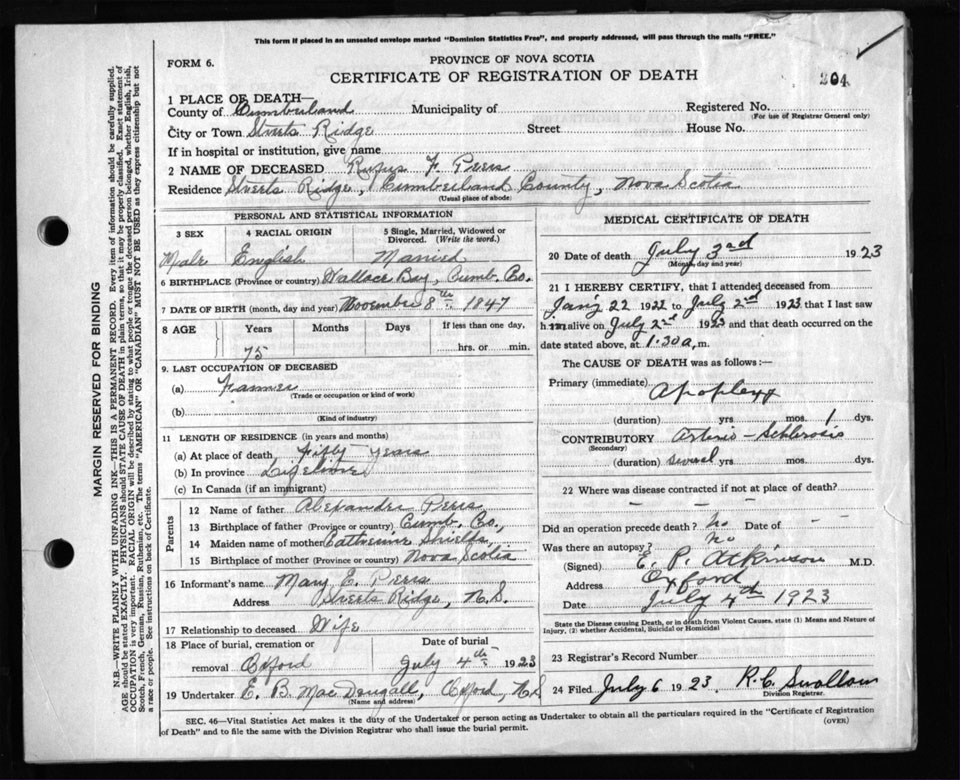 This form if placed in an unsealed envelope marked "Dominion Statistics Free", and properly addressed, will pass through the mails "FREE."
FORM 6.
PROVINCE OF NOVA SCOTIA
CERTIFICATE OF REGISTRATION OF DEATH
204
1 PLACE OF DEATH—
County of Cumberland Municipality of Registered No.
(For use of Registrar General only)
City or Town Streets Ridge Street House No.
If in hospital or institution, give name
2 NAME OF DECEASED Rufus F. Piers
Residence Streets Ridge, Cumberland County, Nova Scotia
(Usual place of abode)
PERSONAL AND STATISTICAL INFORMATION
3 SEX 4 RACIAL ORIGIN 5 Single, Married, Widowed or Divorced. (Write the word.)
Male English Married
6 BIRTHPLACE (Province or country) Wallace Bay, Cumb. Co.
7 DATE OF BIRTH (month, day and year) November 8th 1847
8 AGE Years Months Days If less than one day,
75 hrs. or min.
9. LAST OCCUPATION OF DECEASED
(a) Farmer
(Trade or occupation or kind of work)
(b)
(Kind of industry)
11 LENGTH OF RESIDENCE (in years and months)
(a) At place of death fifty years
(b) In province Lifetime
(c) In Canada (if an immigrant)
Parents
12 Name of father Alexander Piers
13 Birthplace of father (Province or country) Cumb. Co.,
14 Maiden name of mother Catherine Shields
15 Birthplace of mother (Province or country) Nova Scotia
16 Informant's name Mary E. Piers
Address Streets Ridge, N.S.
17 Relationship to deceased Wife
18 Place of burial, cremation or removal Oxford Date of burial July 4th 1923
19 Undertaker E. B. MacDougall, Oxford, N.S
(Name and address)
MEDICAL CERTIFICATE OF DEATH
20 Date of death July 3rd 1923
(Month, day and year)
21 I HEREBY CERTIFY, that I attended deceased from
Jan'y 22 1922 to July 2nd 1923 that I last saw
him alive on July 2nd 1923 and that death occurred on the
date stated above, at 1.30 a, m.
The CAUSE OF DEATH was as follows:—
Primary (immediate) Apoplexy
(duration) yrs mos. 1 dys.
CONTRIBUTORY Arterio-Schlerosis
(Secondary)
(duration) several yrs mos. dys.
22 Where was disease contracted if not at place of death?
— — —
Did an operation precede death? No Date of – –
Was there an autopsy? No
(Signed) E. P. Atkinson M.D.
Address Oxford
Date July 4th 1923
State the Disease causing Death, or in death from Violent Causes, state (1) Means and Nature of
Injury, (2) whether Accidental, Suicidal or Homicidal
23 Registrar's Record Number
24 Filed July 6 1923. R. C. Swallow
Division Registrar.
SEC. 46—Vital Statistics Act makes it the duty of the Undertaker or person acting as Undertaker to obtain all the particulars required in the "Certificate of Registration
of Death" and to file the same with the Division Registrar who shall issue the burial permit.
(OVER)
MARGIN RESERVED FOR BINDING
N.B.—WRITE PLAINLY WITH UNFADING INK—THIS IS A PERMANENT RECORD. Every item of information should be carefully supplied.
AGE should be stated EXACTLY. PHYSICIANS should STATE CAUSE OF DEATH in plain terms, so that it may be properly classified. Exact statement of
OCCUPATION is very important. RACIAL ORIGIN will be described by stating to what people or tongue the deceased person belonged, whether English, Irish,
Scotch, French, German, Russian, Ruthenian, etc. The terms "AMERICAN" OR "CANADIAN" MUST NOT BE USED as they express citizenship but not
a race or people. See instructions on back of Certificate.